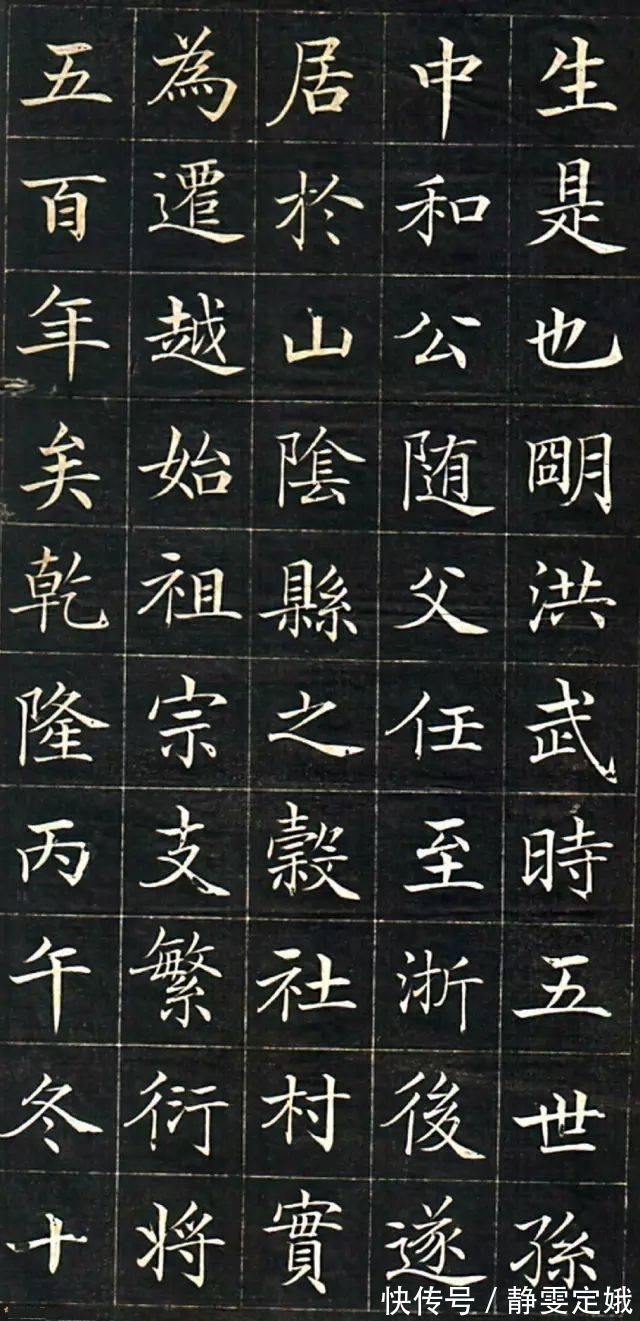 生是也朙洪武時五世孫
中和公随父任至浙後遂
居於山陰縣之穀社村實
為遷越始祖宗支繁衍将
五百年矣乾隆丙午冬十
快传号 / 静雯定娥